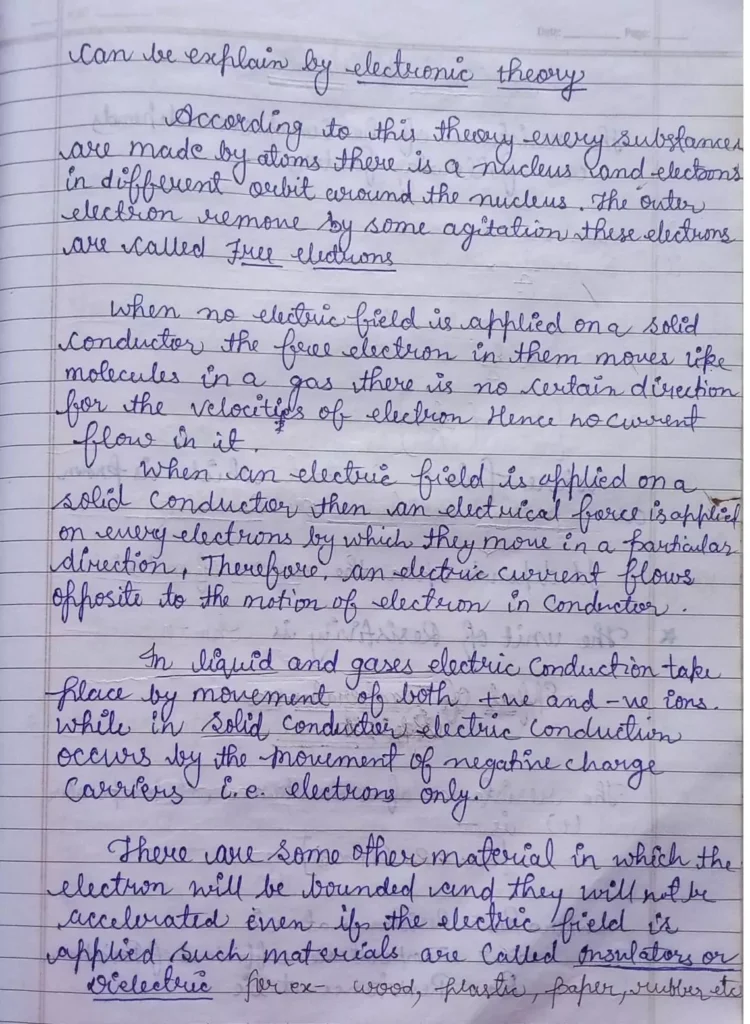 Date: Page:
can be explain by electronic theory
According to this theory every substances
are made by atoms there is a nucleus and electrons
in different orbit around the nucleus. The outer
electron remove by some agitation these electrons
are called Free electrons
When no electric field is applied on a solid
conductor the free electron in them moves like
molecules in a gas there is no certain direction
for the velocities of electron Hence no current
flow in it.
When an electric field is applied on a
solid conductor then an electrical force is applied
on every electrons by which they move in a particular
direction, Therefore, an electric current flows
opposite to the motion of electron in conductor.
In liquid and gases electric conduction take
place by movement of both +ve and -ve ions.
while in solid conductor electric conduction
occurs by the movement of negative charge
Carriers i.e. electrons only.
There are some other material in which the
electron will be bounded and they will not be
accelerated even if the electric field is
applied such materials are called insulators or
Dielectric for ex- wood, plastic, paper, rubber etc